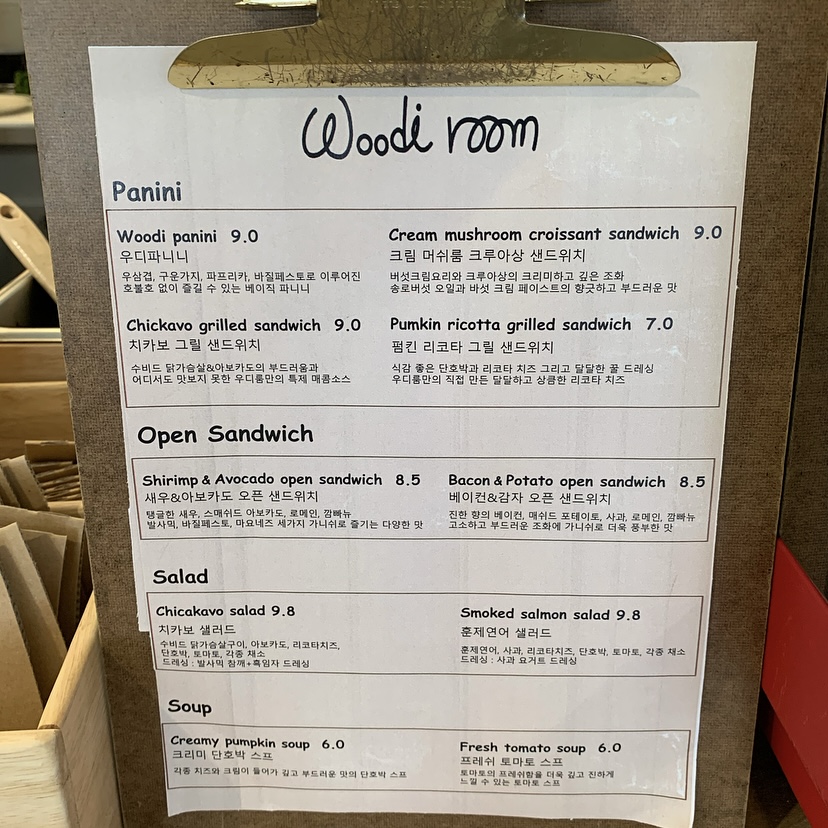 Woodi room
Panini
Woodi panini 9.0
우디파니니
우삼겹, 구운가지, 파프리카, 바질페스토로 이루어진
호불호 없이 즐길 수 있는 베이직 파니니
Cream mushroom croissant sandwich 9.0
크림 머쉬룸 크루아상 샌드위치
버섯크림요리와 크루아상의 크리미하고 깊은 조화
송로버섯 오일과 바섯 크림 페이스트의 향긋하고 부드러운 맛
Chickavo grilled sandwich 9.0
치카보 그릴 샌드위치
수비드 닭가슴살&아보카도의 부드러움과
어디서도 맛보지 못한 우디룸만의 특제 매콤소스
Pumkin ricotta grilled sandwich 7.0
펌킨 리코타 그릴 샌드위치
식감 좋은 단호박과 리코타 치즈 그리고 달달한 꿀 드레싱
우디룸만의 직접 만든 달달하고 상큼한 리코타 치즈
Open Sandwich
Shirimp & Avocado open sandwich 8.5
새우&아보카도 오픈 샌드위치
탱글한 새우, 스매쉬드 아보카도, 로메인, 깜빠뉴
발사믹, 바질페스토, 마요네즈 세가지 가니쉬로 즐기는 다양한 맛
Bacon & Potato open sandwich 8.5
베이컨&감자 오픈 샌드위치
진한 향의 베이컨, 매쉬드 포테이토, 사과, 로메인, 깜빠뉴
고소하고 부드러운 조화에 가니쉬로 더욱 풍부한 맛
Salad
Chicakavo salad 9.8
치카보 샐러드
수비드 닭가슴살구이, 아보카도, 리코타치즈,
단호박, 토마토, 각종 채소
드레싱 : 발사믹 참깨+흑임자 드레싱
Smoked salmon salad 9.8
훈제연어 샐러드
훈제연어, 사과, 리코타치즈, 단호박, 토마토, 각종 채소
드레싱 : 사과 요거트 드레싱
Soup
Creamy pumpkin soup 6.0
크리미 단호박 스프
각종 치즈와 크림이 들어가 깊고 부드러운 맛의 단호박 스프
Fresh tomato soup 6.0
프레쉬 토마토 스프
토마토의 프레쉬함을 더욱 깊고 진하게
느낄 수 있는 토마토 스프